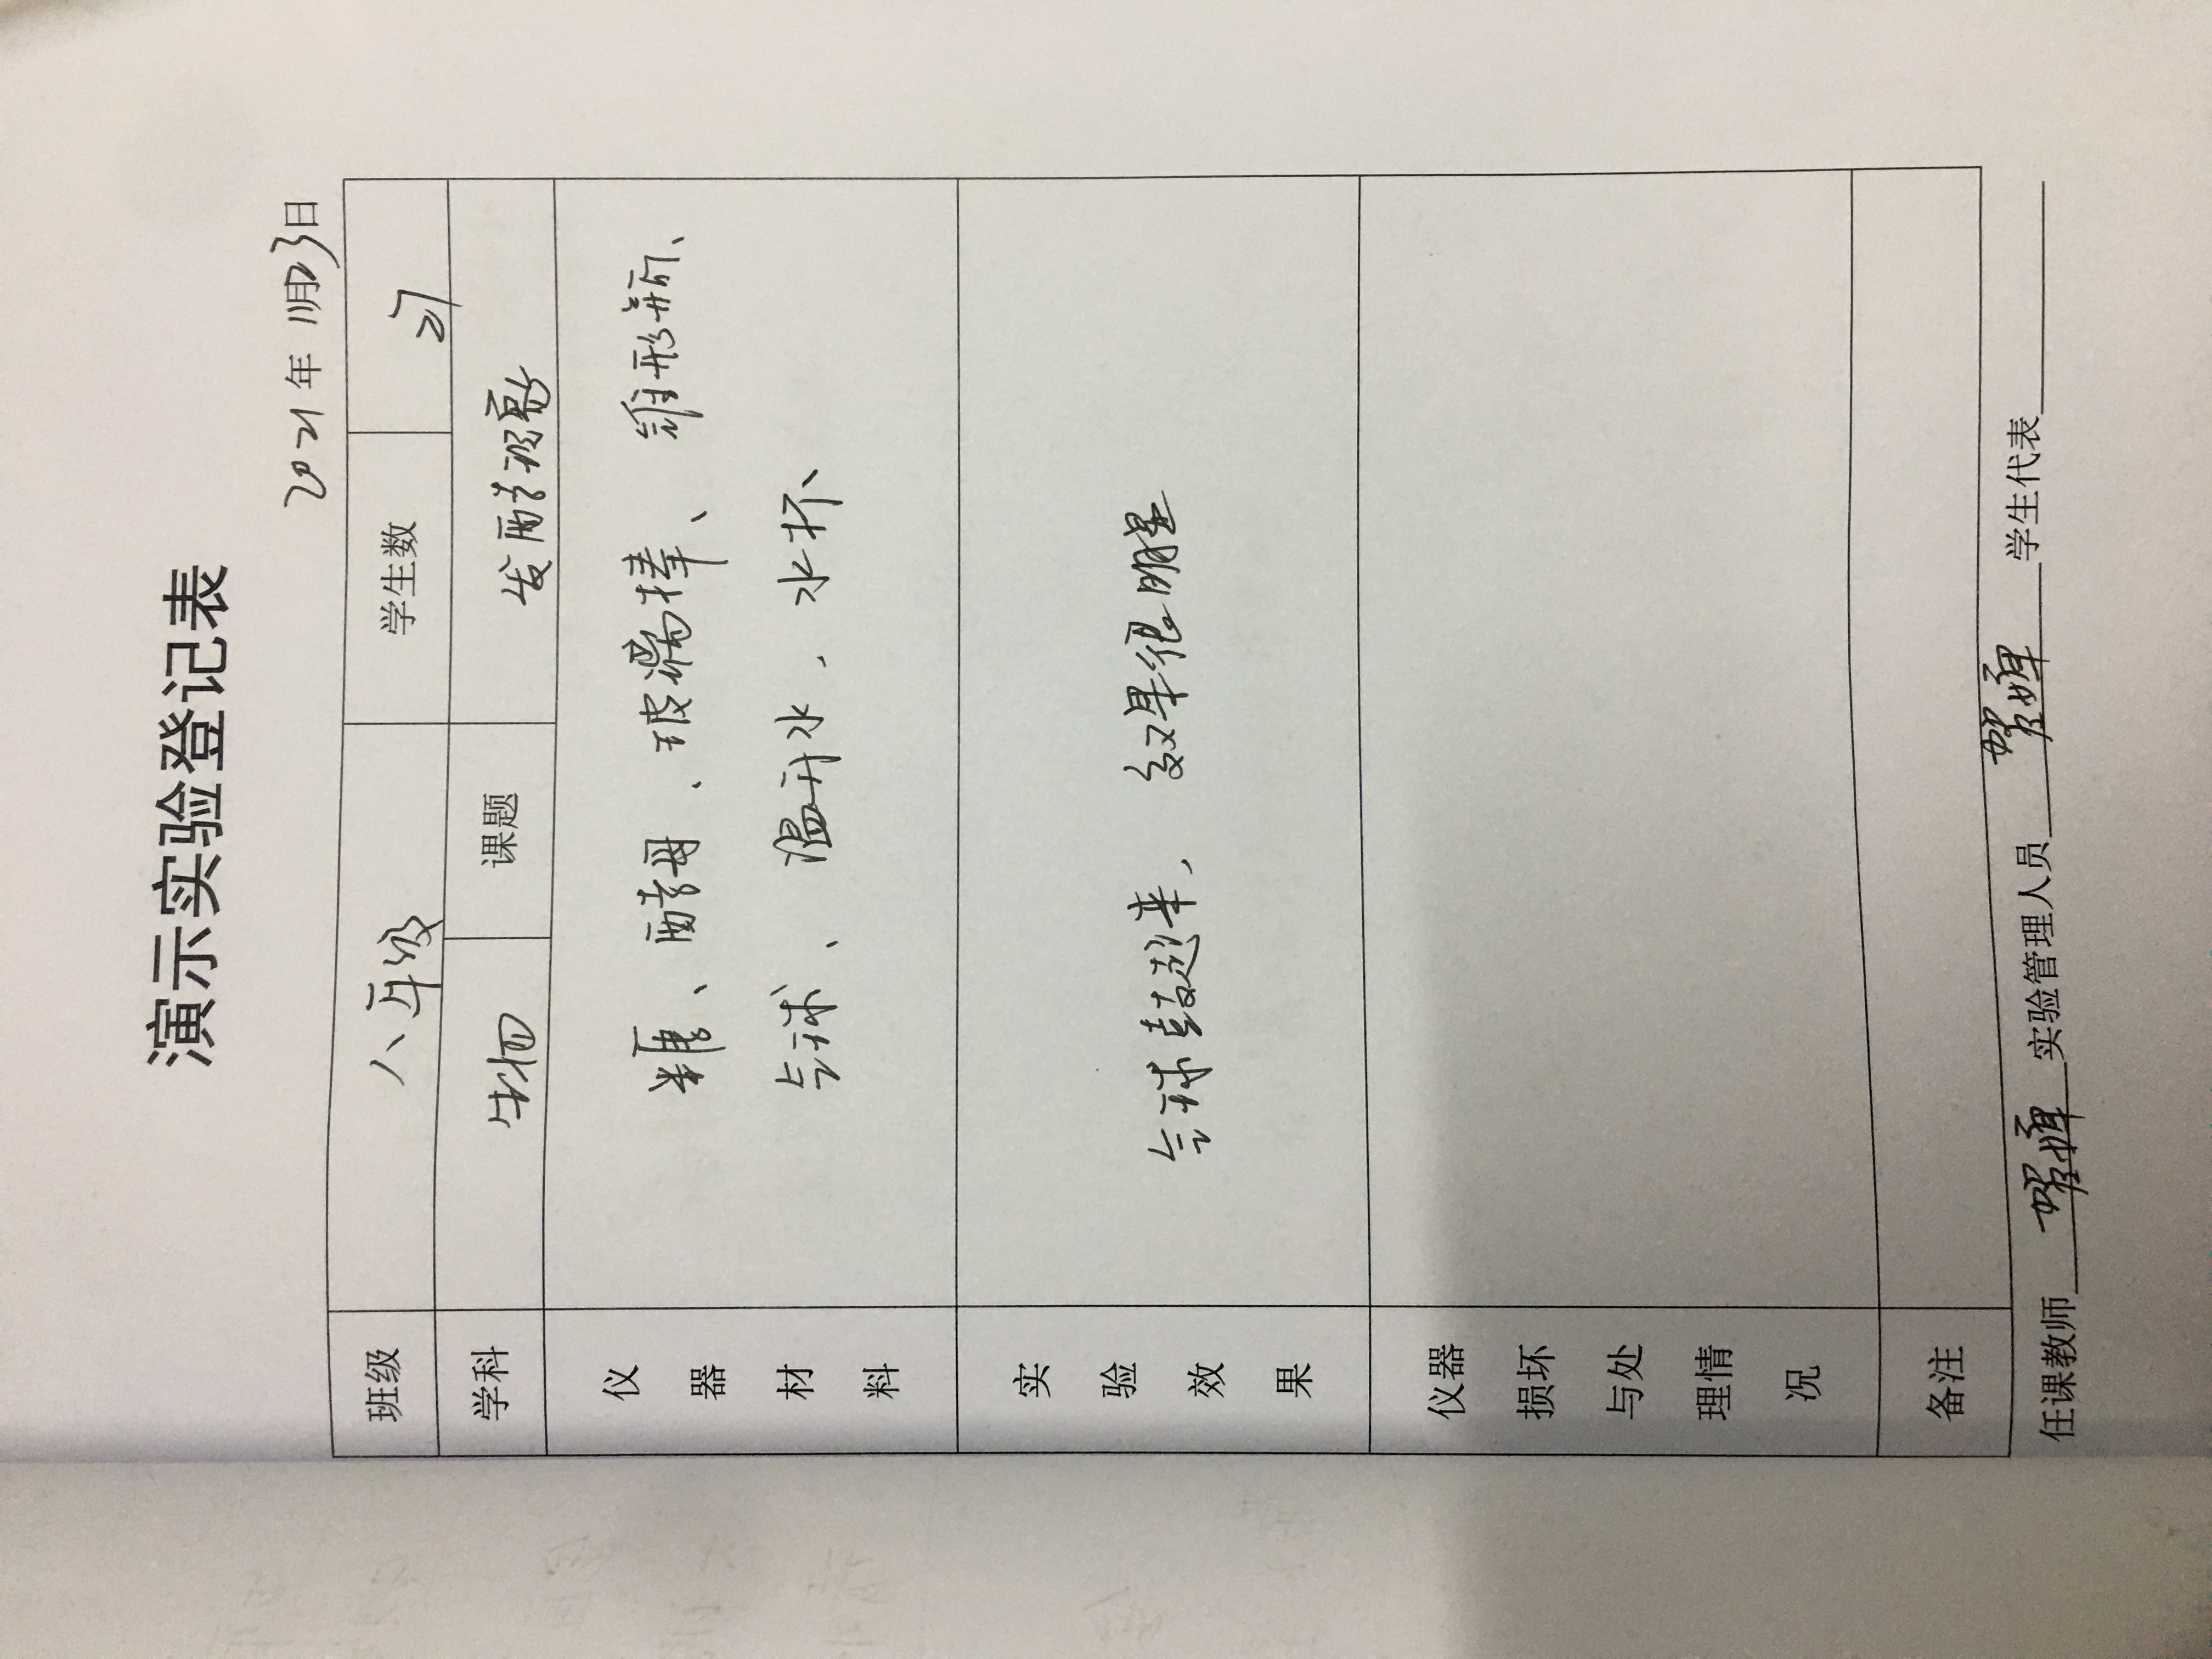 演示实验登记表
2021年11月23日
班级 八年级 学生数 27
学科 生物 课题 发酵现象
仪器材料 糖、酵母、玻璃棒、锥形瓶、
气球、温开水，水杯
实验效果 气球鼓起来，效果很明显
仪器损坏与处理情况
备注
任课教师 实验管理人员 学生代表